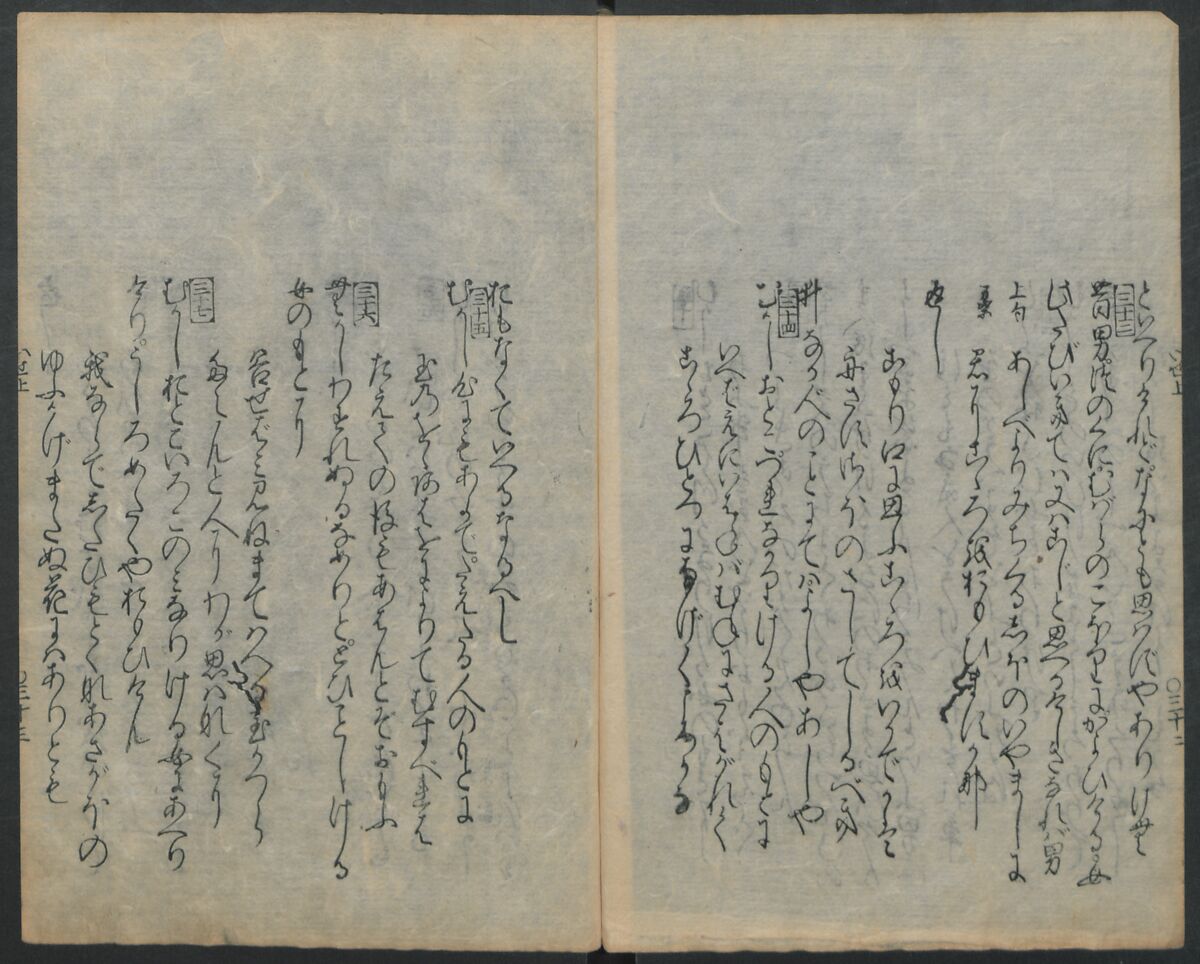 といへりければなにとも思はずやありけむ
三十三
昔男津のくにむばらのこほりにかよひける女
此たびいきては又はこじと思へるけしきなれば男
上句 あしべよりみちくるしほのいやましに
葉 君にこゝろを おもひますかな
返し
こもり江に思ふこゝろをいかでかは
舟さすさほのさしてしるべき
井なか人のことにてはよしやあしや
三十四
むかしおとこつれなかりける人のもとに
いへばえにいはねばむねにさはがれて
こゝろひとつになげくころかな
おもなくていへるなるべし
三十五
むかし心にもあらでたえたる人のもとに
玉の緒をあはをによりてむすべれば
たえての後もあはんとぞおもふ
三十六
むかしわすれぬるなめりととひことしける
女のもとに
谷せばみみねまではへる玉かつら
たえんと人にわが思はなくに
三十七
むかしおとこいろこのみなりける女にあへり
けりうしろめたくやおもひけん
我ならでしたひもとくなあさがほの
ゆふかげまたぬ花にはありとも